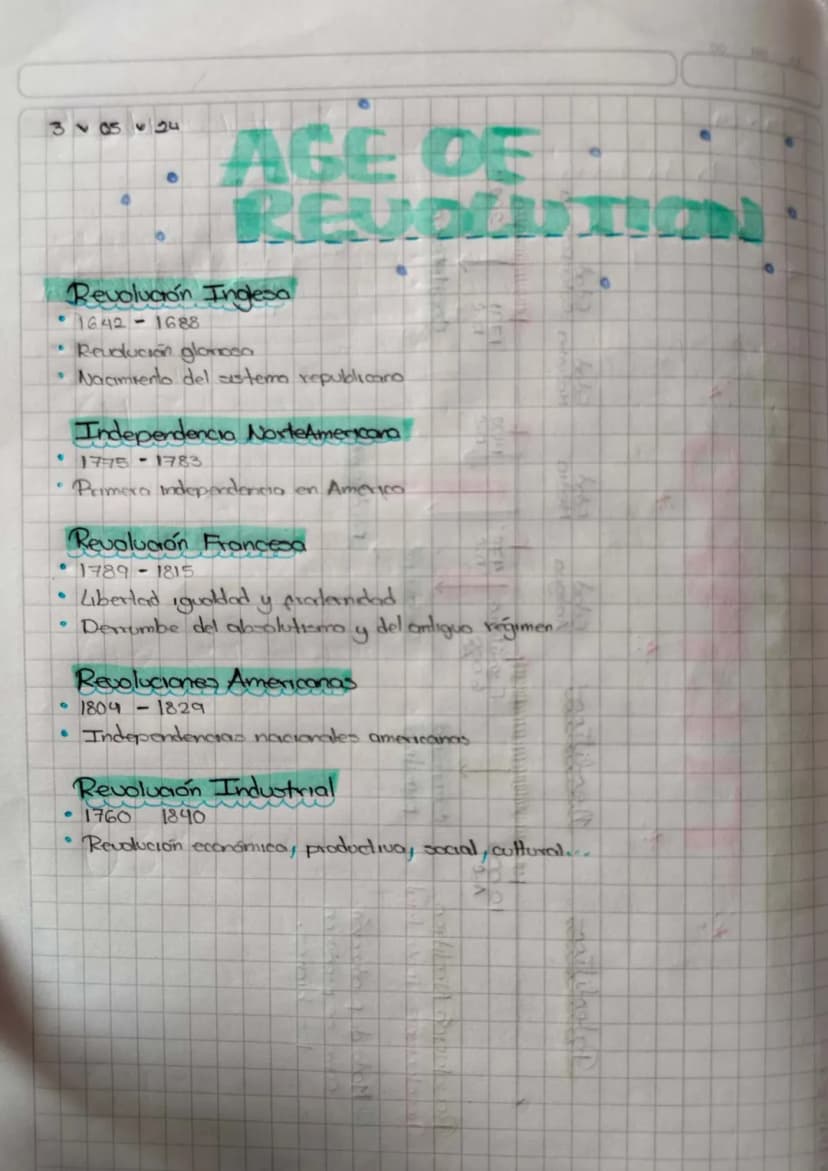 3 05 24
AGE OF
REVOLUTION
Revolución Inglesa
• 1642 - 1688
• Revolución gloriosa
• Nacimiento del sistema republicano
Independencia NorteAmericana
• 1775 - 1783
• Primera independencia en America
Revolución Francesa
• 1789 - 1815
• Libertad igualdad y fraternidad
• Derrumbe del absolutismo y del antiguo régimen
Revoluciones Americanas
• 1804 - 1829
• Independencias nacionales americanas
Revolución Industrial
• 1760 1840
• Revolución económica, productiva, social, cultural...